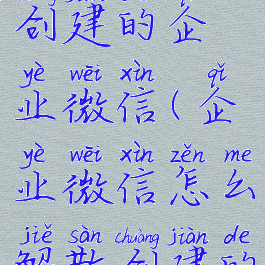 创建的企
yè wēi xìn qǐ
业微信(企
yè wēi xìn zěn me
业微信怎么
jiě sàn chuàng jiàn de
解散创建的